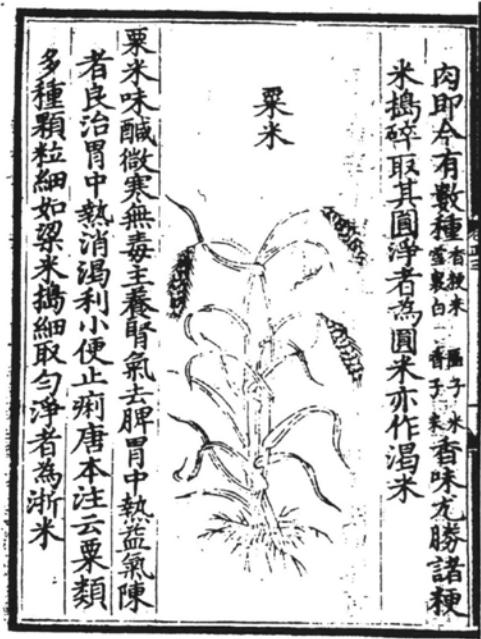 肉即今有數種香粳米匾子米雪裏白香子米香味尤勝諸粳
米搗碎取其圓淨者為圓米亦作渴米
粟米
粟米味醎微寒無毒主養腎氣去脾胃中熱益氣陳
者良治胃中熱消渴利小便止痢唐本注云粟類
多種顆粒細如粱米搗細取勻淨者為浙米